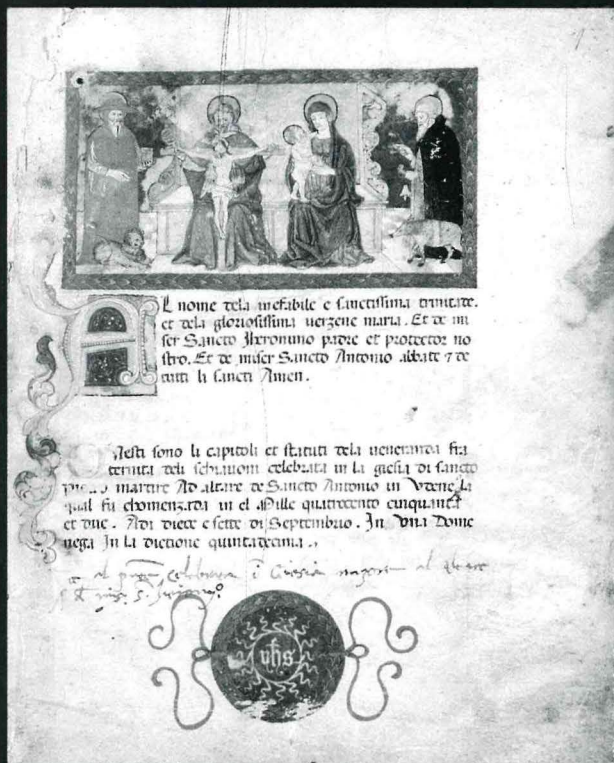 A L nome dela inefabile e sanctissima trinitade.
et dela gloriosissima uerzene maria. Et de mi
ser Sancto Iheronimo padre et protector no
stro. Et de miser Sancto Antonio abbate ⁊ de
tutti li sancti Amen.
Questi sono li capitoli et statuti dela ueneranda fra
ternita deli schiauoni celebrata in la giesia di sancto
martire Ad altare de Sancto Antonio in Vdene la
qual fu chomenzada in el Mille quatrocento cinquanta
et due. Adi diece e sette di Septembrio. In Vna Dome
nega In la dictione quintadecima.
al celebrava
yhs